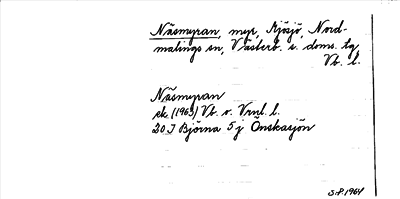 Näsmyran, myr, Mjösjö, Nord-
malings sn, Västerb. s. doms. tg
Vb. l.
Näsmyran
ek (1963) Vb. o. Vrnl. l.
20 I Björna 5 j Önskasjön
S.P. 1964